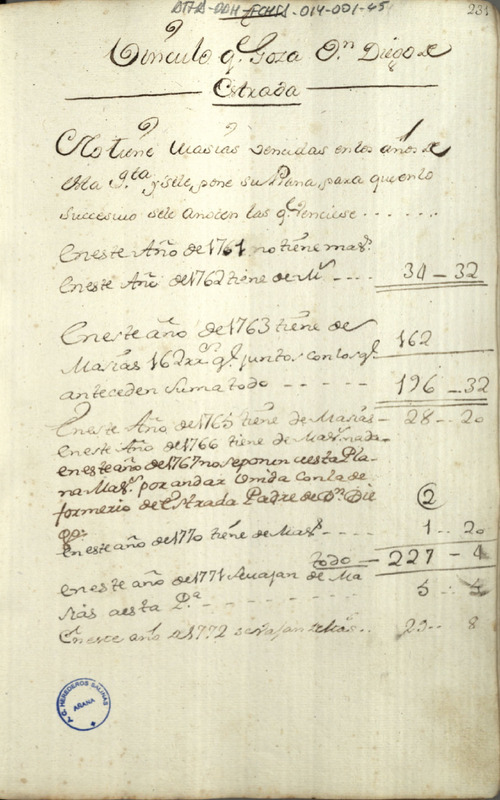 ATHA-DAH-FCHS1-014-001-45
231
Vinculo q.e Goza D.n Diego de
Estrada
No tiene Masias vencidas en los años de
Esta q.ta y se le pone su Plana, para que en lo
succesivo se le anoten las q.e venciese . . . . . . .
En este Año de 1761 no tiene mas.s
En este Año de 1762 tiene de M.s - - - 34 - 32
En este año de 1763 tiene de
Masias 162 q.e juntos con los q.e 162
anteceden suma todo - - - - - 196 - 32
En este Año de 1765 tiene de Masias - 28 - 20
En este Año de 1766 tiene de Mas.s nada -
en este año de 1767 no se ponen a esta Pla-
na Mas.s por andar unida con la de
formerio de Estrada Padre de D.n Die
go. 2
En este año de 1770 tiene de Mas.s - - - - 1 .. 20
todo - 227 - 4
en este año de 1771 se bajan de Ma
sias a esta P.a - - - - - - - 5 - 4
En este año de 1772 se bajan de Mas.s .. 8
T.C. HEREDEROS SALINAS
AÑANA